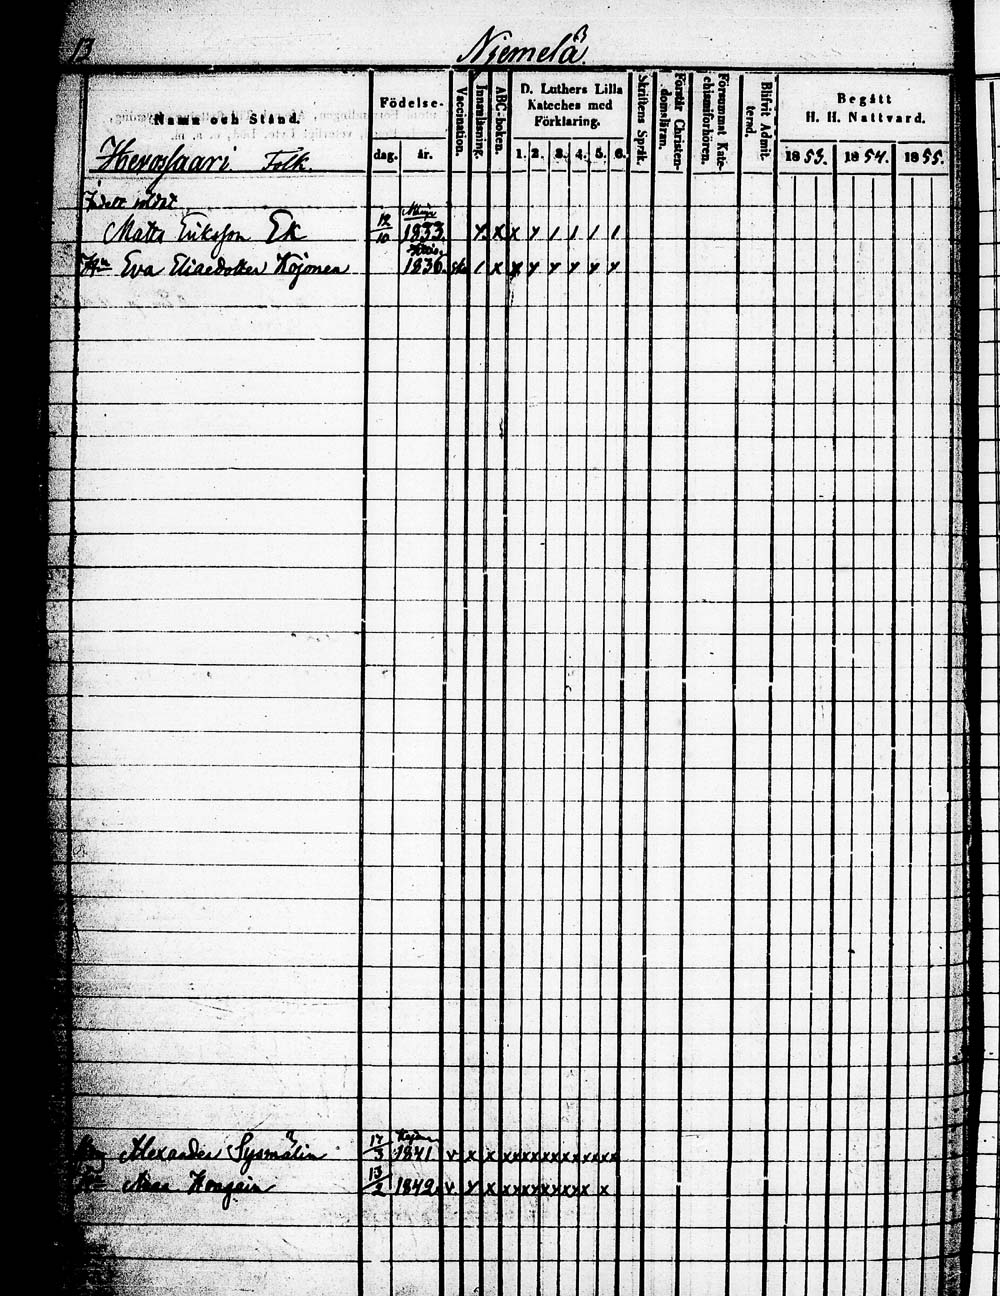 13
Njemelä 3.
Namn och Stånd.
Födelse-
dag. år.
Vaccination.
Innanläsning.
ABC-boken.
D. Luthers Lilla
Kateches med
Förklaring.
1. 2. 3. 4. 5. 6.
Skriftens Språk.
Förstår Christen-
domsläran.
Försummat Kate-
chismiförhören.
Blifvit Admit-
terad.
Begått
H. H. Nattvard.
1853. 1854. 1855.
Folk.
soldat
Matts Eriksson Ek 12/10 1833. x x y / / / /
Hu Eva Eliaedotter Kojonen 1836. / x x y y y y y
Alexander Sysmälin 17/3 1841 v x x xxxxxxxxxxxx
Hu Anna 13/2 1842. v y x xxxxxxxxx x